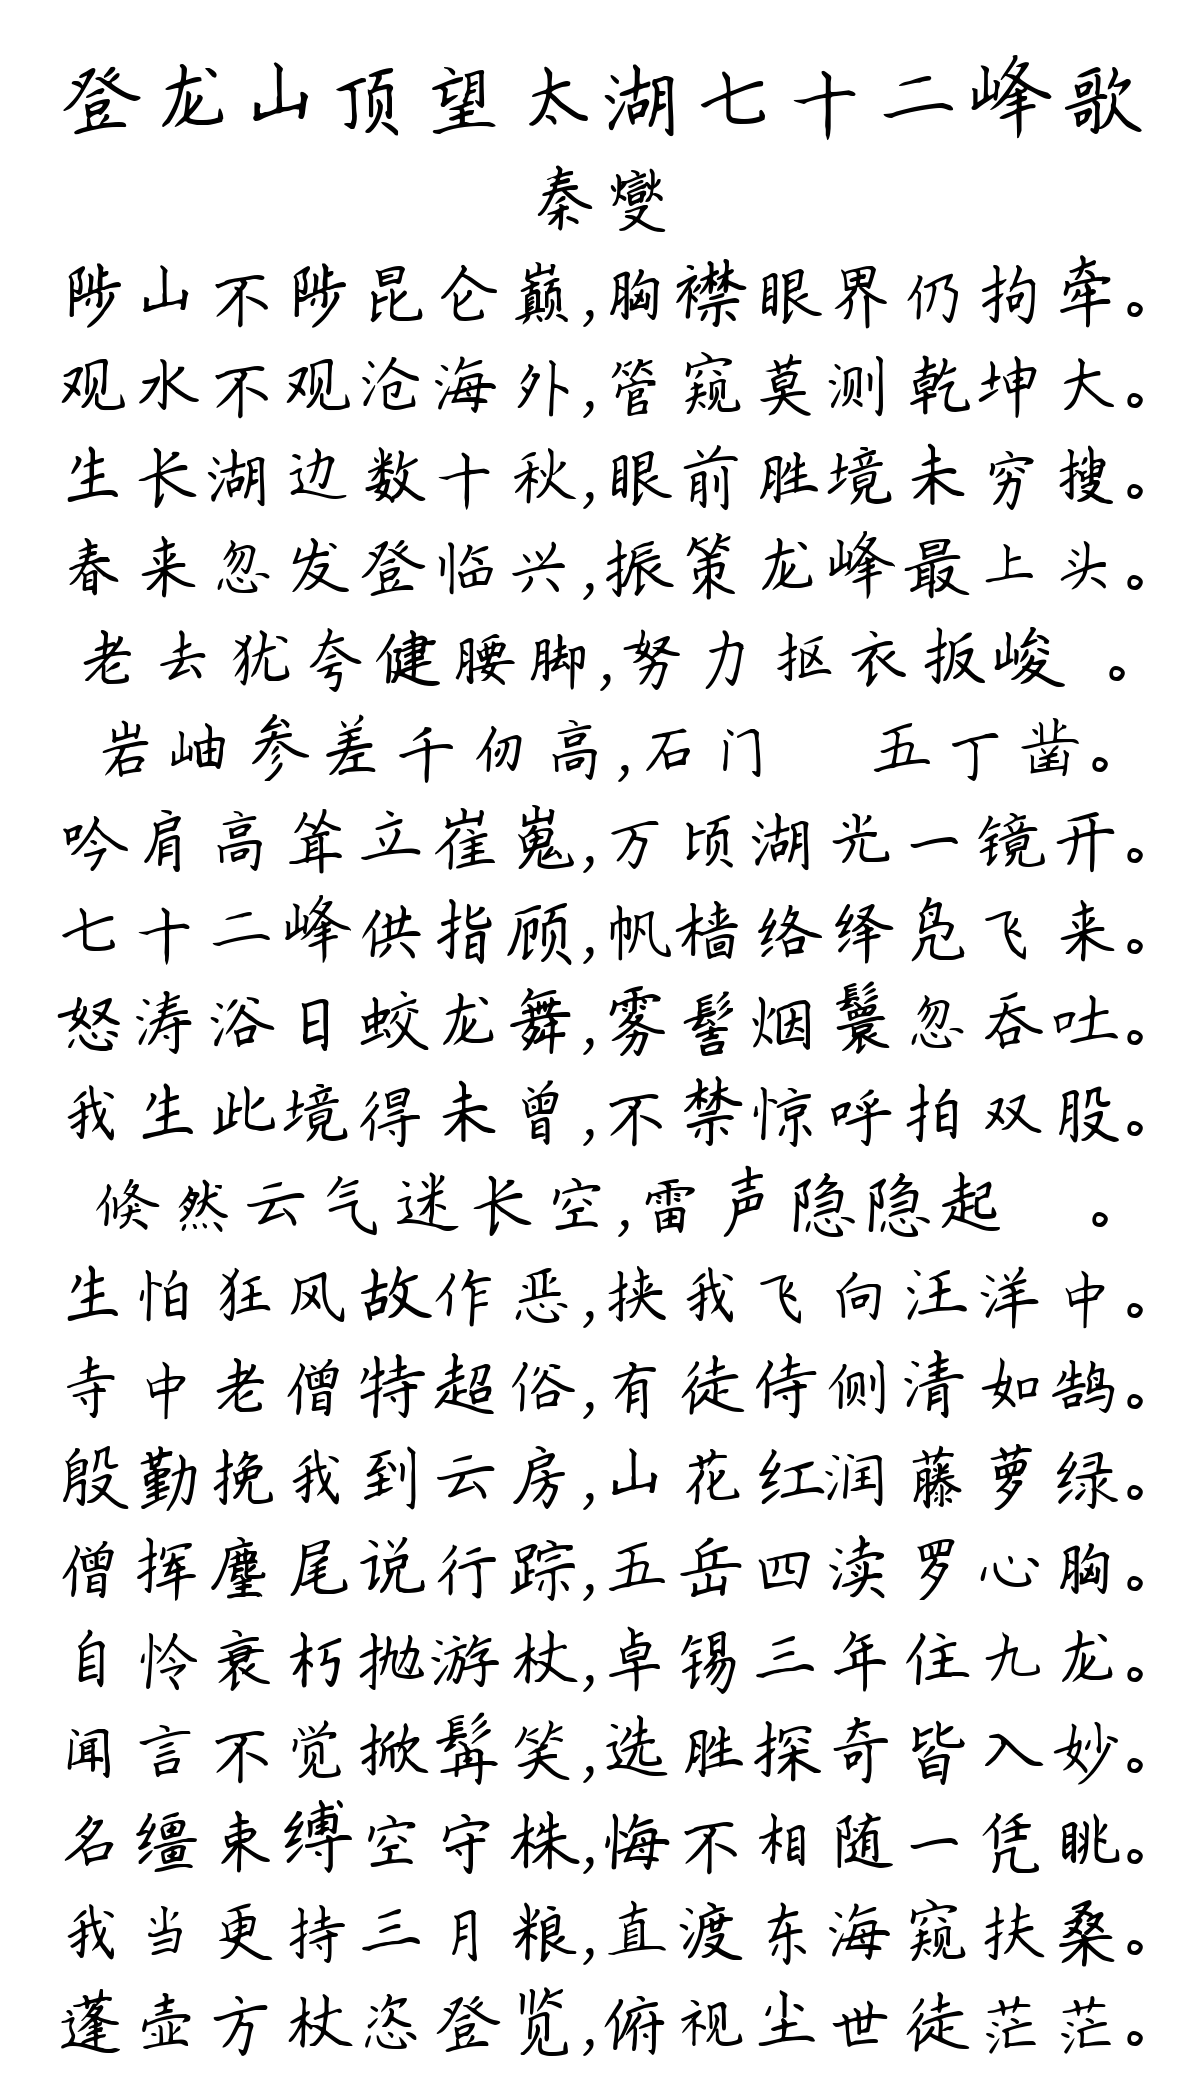 登龙山顶望太湖七十二峰歌
秦燮
陟山不陟昆仑巅,胸襟眼界仍拘牵。
观水不观沧海外,管窥莫测乾坤大。
生长湖边数十秋,眼前胜境未穷搜。
春来忽发登临兴,振策龙峰最上头。
老去犹夸健腰脚,努力抠衣扳峻 。
岩岫参差千仞高,石门 五丁凿。
吟肩高耸立崔嵬,万顷湖光一镜开。
七十二峰供指顾,帆樯络绎凫飞来。
怒涛浴日蛟龙舞,雾髻烟鬟忽吞吐。
我生此境得未曾,不禁惊呼拍双股。
倏然云气迷长空,雷声隐隐起 。
生怕狂风故作恶,挟我飞向汪洋中。
寺中老僧特超俗,有徒侍侧清如鹄。
殷勤挽我到云房,山花红润藤萝绿。
僧挥麈尾说行踪,五岳四渎罗心胸。
自怜衰朽抛游杖,卓锡三年住九龙。
闻言不觉掀髯笑,选胜探奇皆入妙。
名缰束缚空守株,悔不相随一凭眺。
我当更持三月粮,直渡东海窥扶桑。
蓬壶方杖恣登览,俯视尘世徒茫茫。